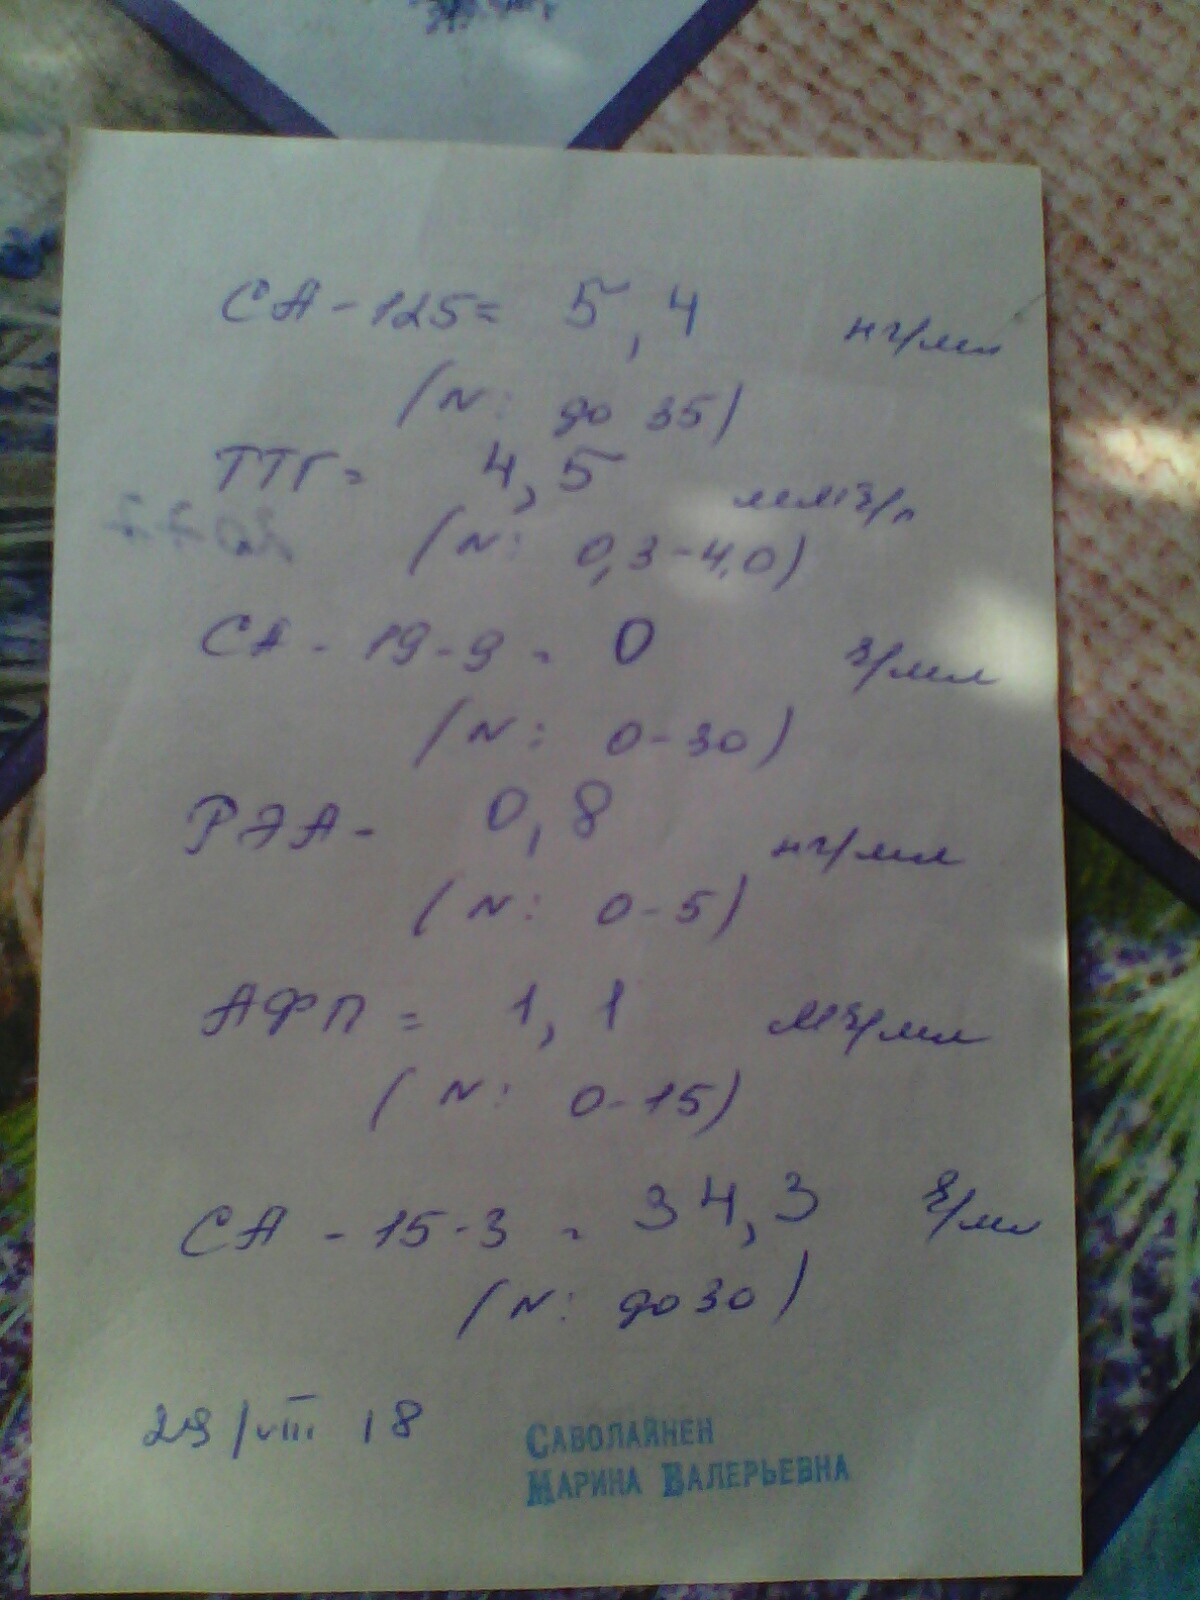 СА - 125 = 5,4 нг/мл
(N: до 35)
ТТГ = 4,5 ммЕ/л
(N: 0,3-4,0)
СА - 19-9 = 0 Е/мл
(N: 0-30)
РЭА - 0,8 нг/мл
(N: 0-5)
АФП = 1,1 МЕ/мл
(N: 0-15)
СА - 15-3 = 34,3 Е/мл
(N: до 30)
29/VIII 18
САВОЛАЙНЕН
МАРИНА ВАЛЕРЬЕВНА